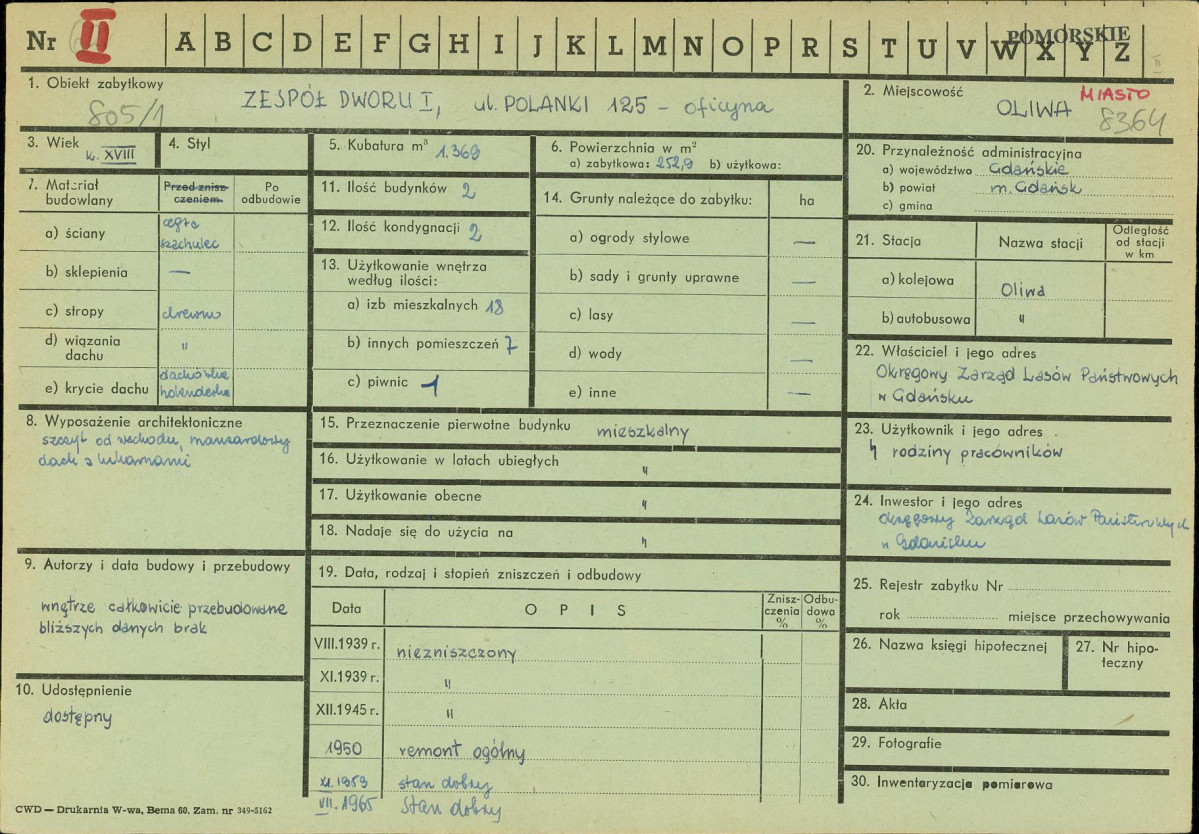 Nr II A B C D E F G H I J K L M N O P R S T U V W X Y Z
POMORSKIE
II
1. Obiekt zabytkowy
ZESPÓŁ DWORU I, ul. POLANKI 125 – oficyna
805/1
2. Miejscowość
OLIWA
MIASTO
8364
3. Wiek
k. XVIII
4. Styl
5. Kubatura m³ 1.369
6. Powierzchnia w m²
a) zabytkowa: 252,9 b) użytkowa:
7. Materiał budowlany
Przed zniszczeniem
Po odbudowie
a) ściany
cegła
szachulec
b) sklepienia —
c) stropy drewno
d) wiązania dachu "
e) krycie dachu
dachówka
holenderka
8. Wyposażenie architektoniczne
szczyt od wschodu, mansardowy
dach z lukarnami
9. Autorzy i data budowy i przebudowy
wnętrze całkowicie przebudowane
bliższych danych brak
10. Udostępnienie
dostępny
CWD — Drukarnia W-wa, Bema 60. Zam. nr 349-5162
11. Ilość budynków 2
12. Ilość kondygnacji 2
13. Użytkowanie wnętrza
według ilości:
a) izb mieszkalnych 18
b) innych pomieszczeń 7
c) piwnic 1
14. Grunty należące do zabytku: ha
a) ogrody stylowe —
b) sady i grunty uprawne —
c) lasy —
d) wody —
e) inne —
15. Przeznaczenie pierwotne budynku mieszkalny
16. Użytkowanie w latach ubiegłych "
17. Użytkowanie obecne "
18. Nadaje się do użycia na "
19. Data, rodzaj i stopień zniszczeń i odbudowy
Data OPIS Zniszczenia % Odbudowa %
VIII.1939 r. niezniszczony
XI.1939 r. "
XII.1945 r. "
1950 remont ogólny
XI.1959 stan dobry
VII.1965 stan dobry
20. Przynależność administracyjna
a) województwo Gdańskie
b) powiat m. Gdańsk
c) gmina
21. Stacja Nazwa stacji Odległość od stacji w km
a) kolejowa Oliwa
b) autobusowa "
22. Właściciel i jego adres
Okręgowy Zarząd Lasów Państwowych
w Gdańsku
23. Użytkownik i jego adres
4 rodziny pracówników
24. Inwestor i jego adres
Okręgowy Zarząd Lasów Państwowych
w Gdańsku
25. Rejestr zabytku Nr
rok miejsce przechowywania
26. Nazwa księgi hipotecznej
27. Nr hipoteczny
28. Akta
29. Fotografie
30. Inwentaryzacja pomiarowa